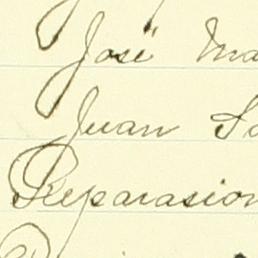 José Ma
Juan Sa
Reparasion